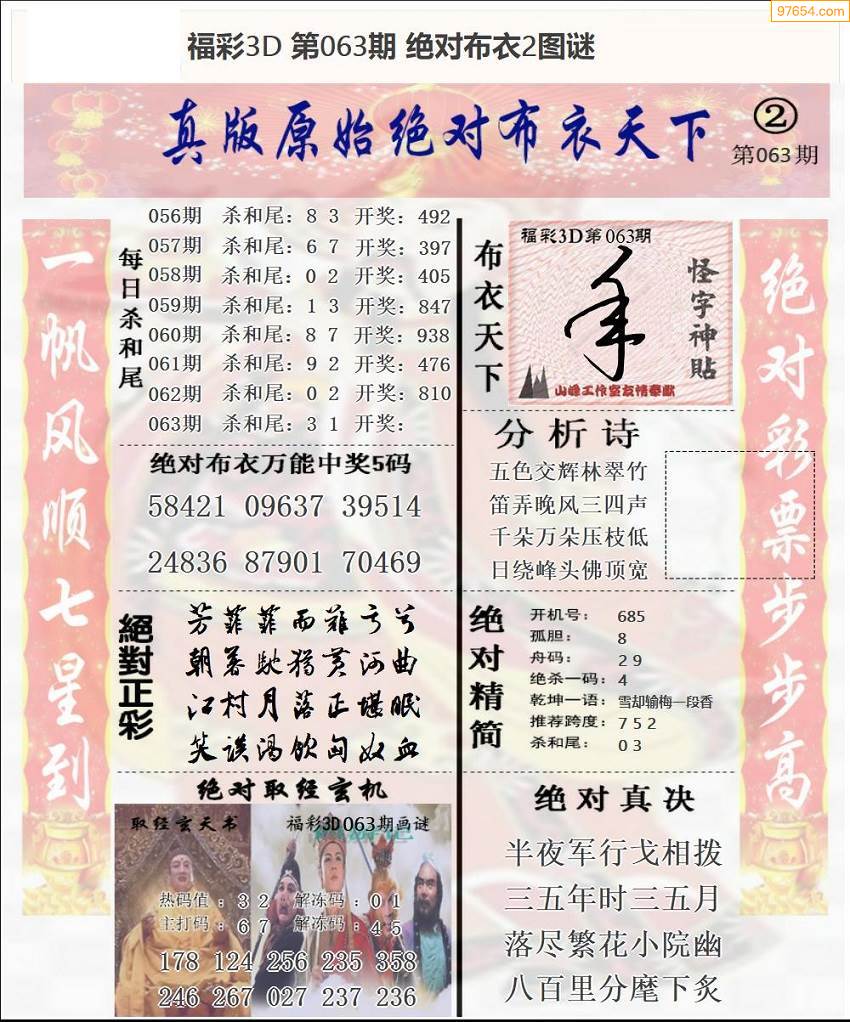 97654.com
福彩3D 第063期 绝对布衣2图谜
真版原始绝对布衣天下
②
第063期
一帆风顺七星到
每日杀和尾
056期 杀和尾：8 3 开奖：492
057期 杀和尾：6 7 开奖：397
058期 杀和尾：0 2 开奖：405
059期 杀和尾：1 3 开奖：847
060期 杀和尾：8 7 开奖：938
061期 杀和尾：9 2 开奖：476
062期 杀和尾：0 2 开奖：810
063期 杀和尾：3 1 开奖：
绝对布衣万能中奖5码
58421 09637 39514
24836 87901 70469
絕對正彩
芳菲菲而难亏兮
朝暮驰猎黄河曲
江村月落正堪眠
笑谈渴饮匈奴血
绝对取经玄机
取经玄天书
福彩3D063期画谜
热码值：3 2 解冻码：0 1
主打码：6 7 解冻码：4 5
178 124 256 235 358
246 267 027 237 236
布衣天下
福彩3D第063期
怪字神贴
山峰工作室友情奉献
分析诗
五色交辉林翠竹
笛弄晚风三四声
千朵万朵压枝低
日绕峰头佛顶宽
绝对精简
开机号： 685
孤胆： 8
舟码： 2 9
绝杀一码：4
乾坤一语：雪却输梅一段香
推荐跨度：7 5 2
杀和尾： 0 3
绝对真决
半夜军行戈相拨
三五年时三五月
落尽繁花小院幽
八百里分麾下炙
绝对彩票步步高